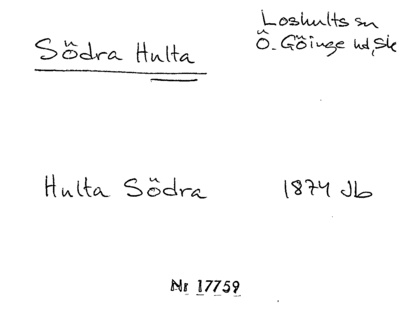 Loshults sn
Södra Hulta
Ö. Göinge hd, Sk
Hulta Södra 1874 Jb
Nr 17759